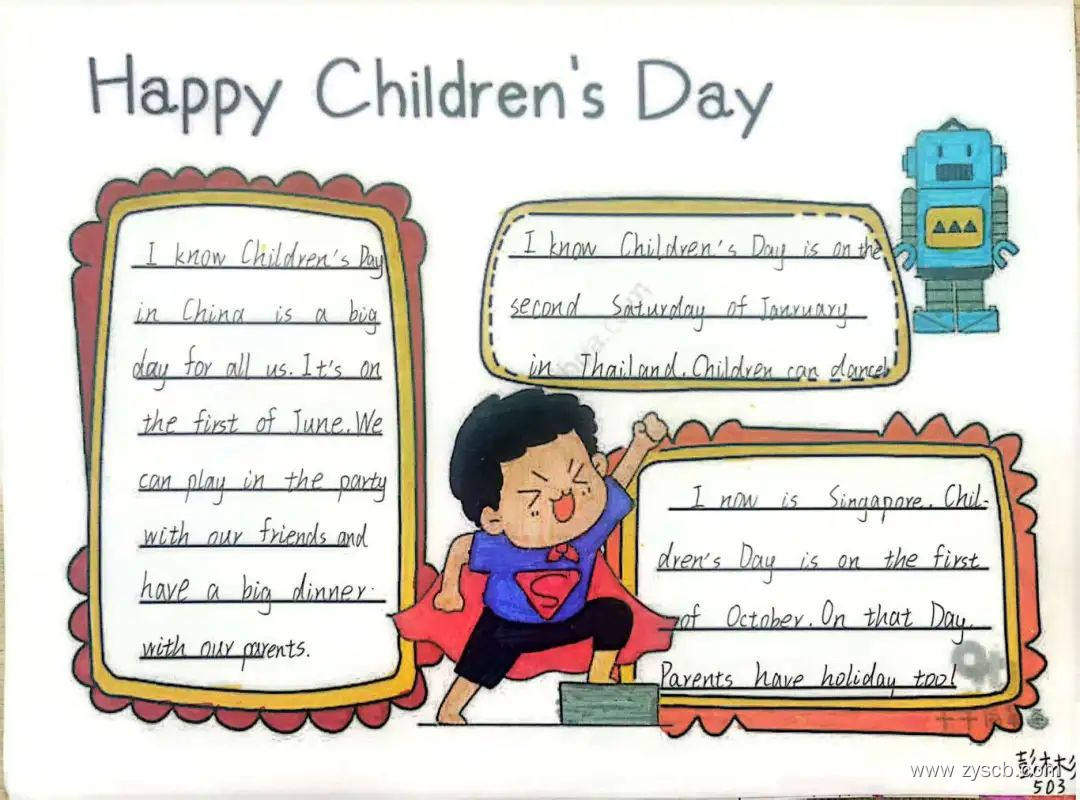 Happy Children's Day
I know Children's Day
in China is a big
day for all us. It's on
the first of June. We
can play in the party
with our friends and
have a big dinner.
with our parents.
I know Children's Day is on the
second Saturday of Janruary
in Thailand. Children can dance!
I now is Singapore. Chil-
dren's Day is on the first
of October. On that Day.
Parents have holiday too!
S
503
www.zyscb.com